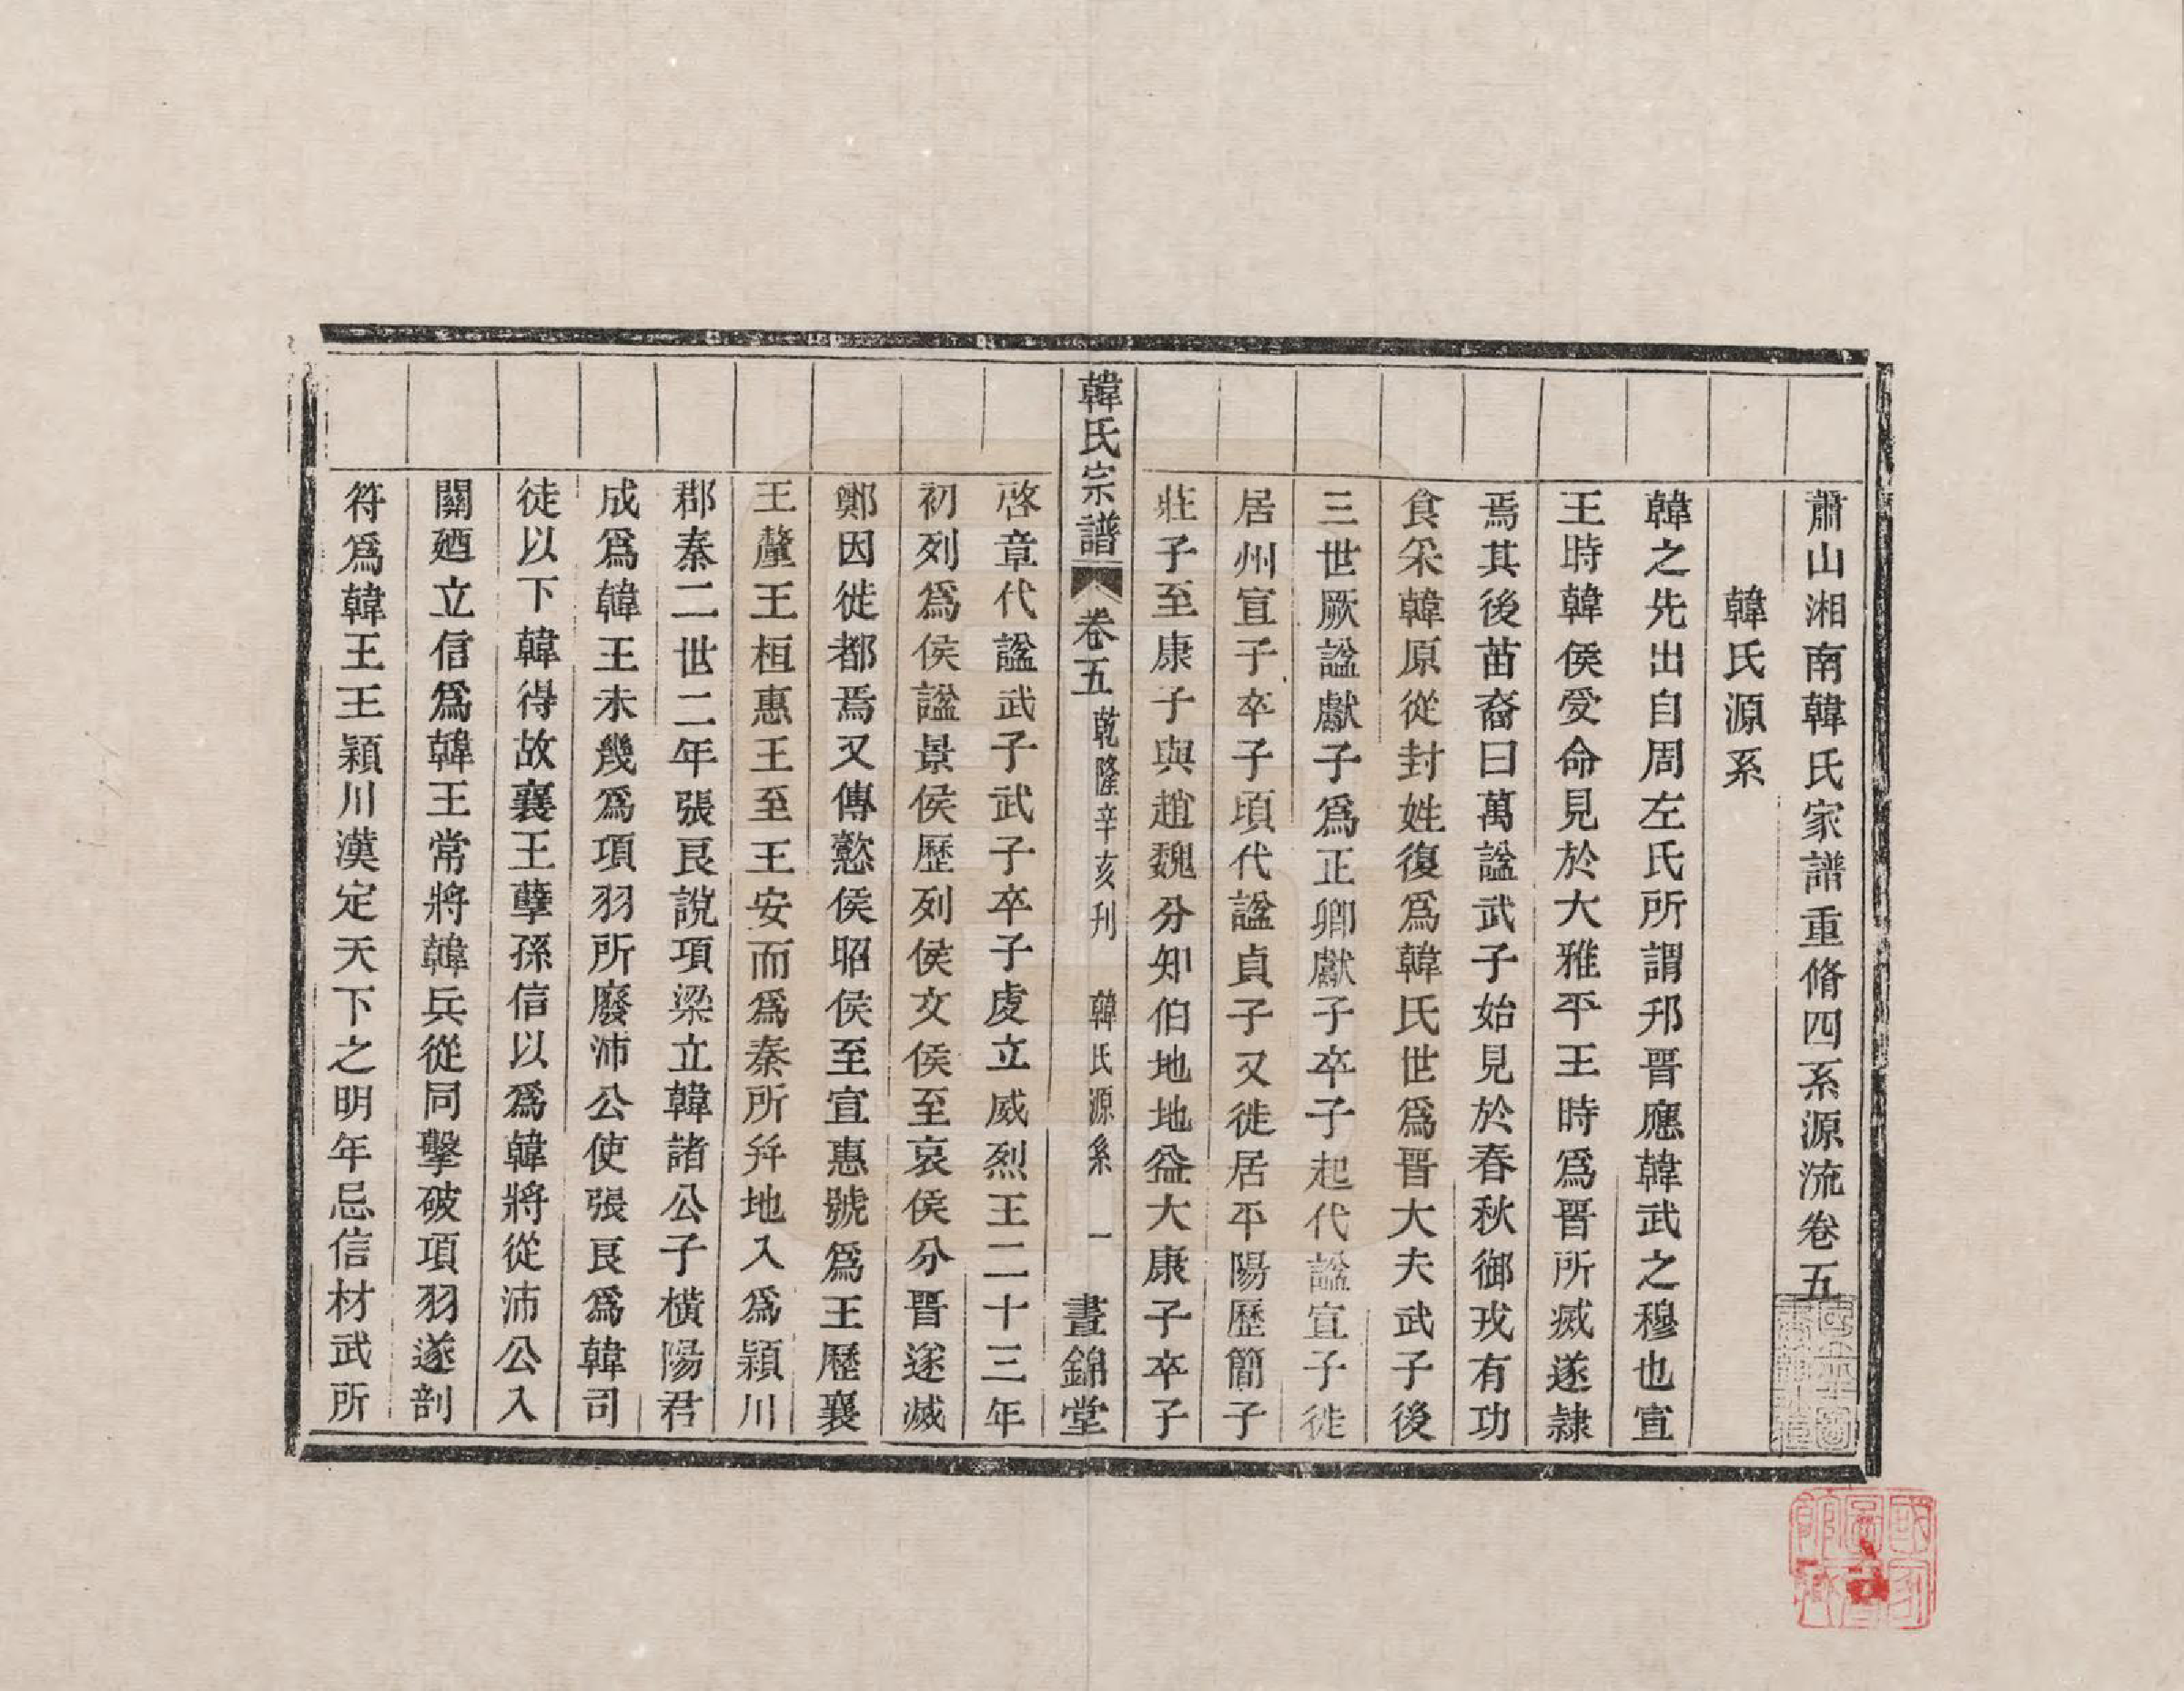 蕭山湘南韓氏家譜重脩四系源流卷五
韓氏源系
韓之先出自周左氏所謂邘晋應韓武之穆也宣
王時韓侯受命見於大雅平王時爲晋所滅遂隷
焉其後苗裔曰萬諡武子始見於春秋御戎有功
食采韓原從封姓復爲韓氏世爲晋大夫武子後
三世厥諡獻子爲正卿獻子卒子起代諡宣子徙
居州宣子卒子頃代諡貞子又徙居平陽歷簡子
莊子至康子與趙魏分知伯地地益大康子卒子
韓氏宗譜 卷五 乾隆辛亥刊 韓氏源系 一 晝錦堂
啓章代諡武子武子卒子虔立威烈王二十三年
初列爲侯諡景侯歷列侯文侯至哀侯分晋遂滅
鄭因徙都焉又傳懿侯昭侯至宣惠號爲王歷襄
王釐王桓惠王至王安而爲秦所幷地入爲潁川
郡秦二世二年張良說項梁立韓諸公子橫陽君
成爲韓王未幾爲項羽所廢沛公使張良爲韓司
徒以下韓得故襄王孽孫信以爲韓將從沛公入
關廼立信爲韓王常將韓兵從同擊破項羽遂剖
符爲韓王王潁川漢定天下之明年忌信材武所